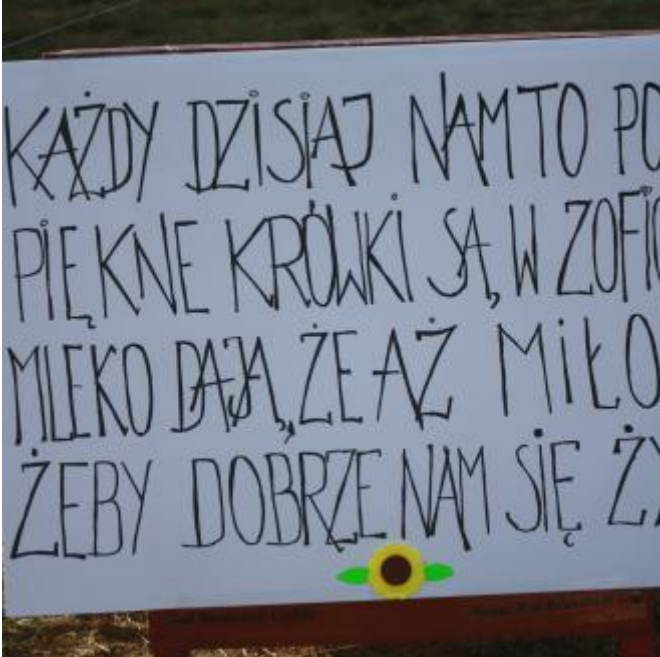 KAŻDY DZISIAJ NAM TO PO
PIĘKNE KRÓWKI SĄ W ZOFIO
MLEKO DAJĄ, ŻE AŻ MIŁO
ŻEBY DOBRZE NAM SIĘ ŻY